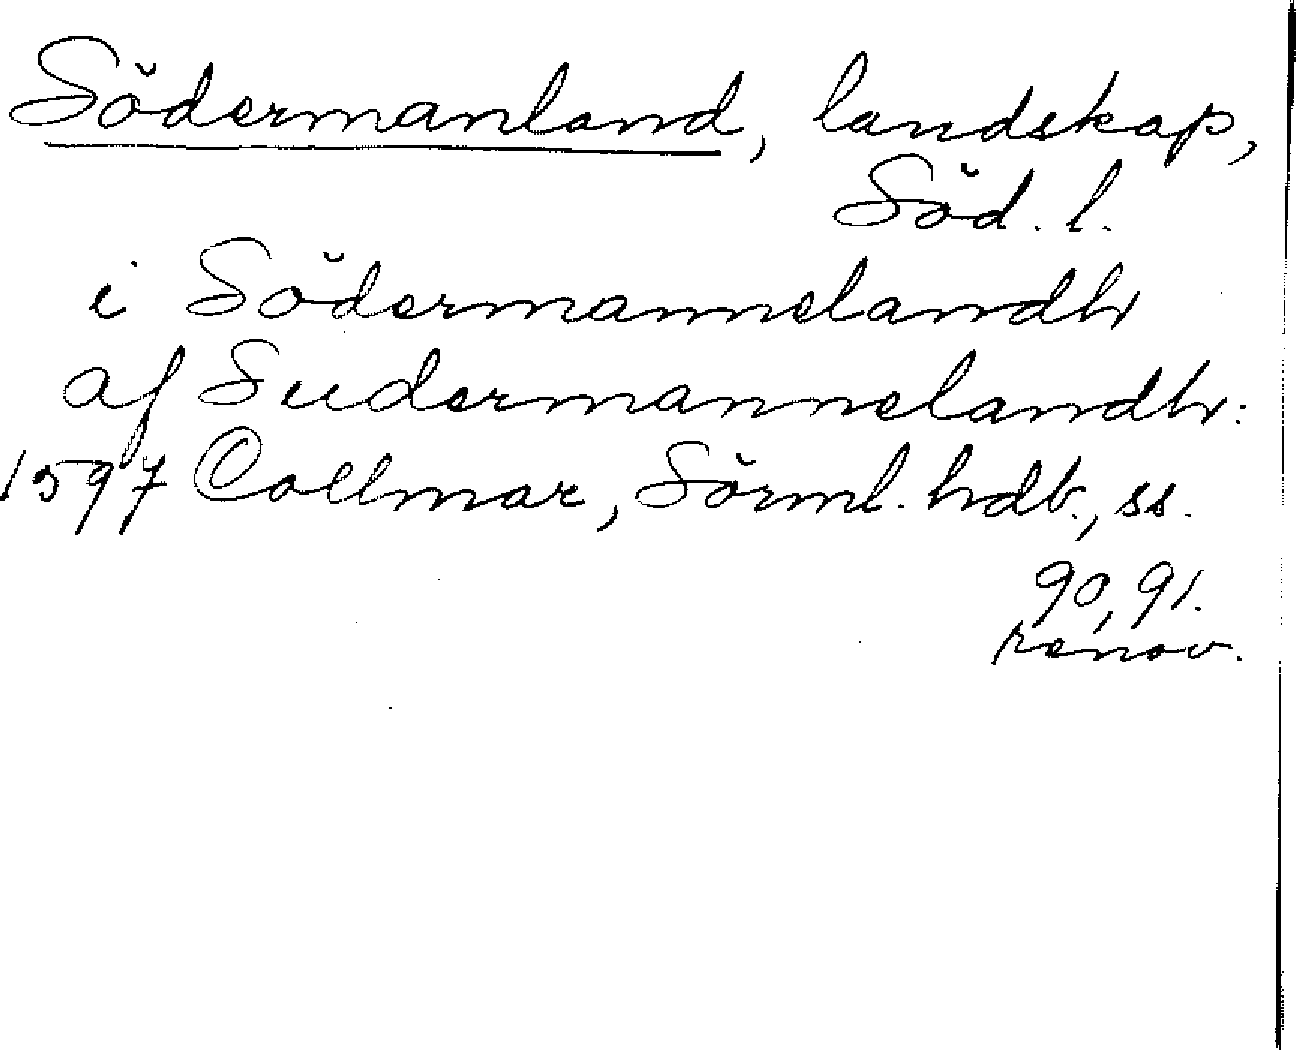 Södermanland, landskap,
Söd. l.
i Södermannelandh
af Sudermannelandh:
1597 Collmar, Sörml. hdb., ss.
90, 91.
renov.